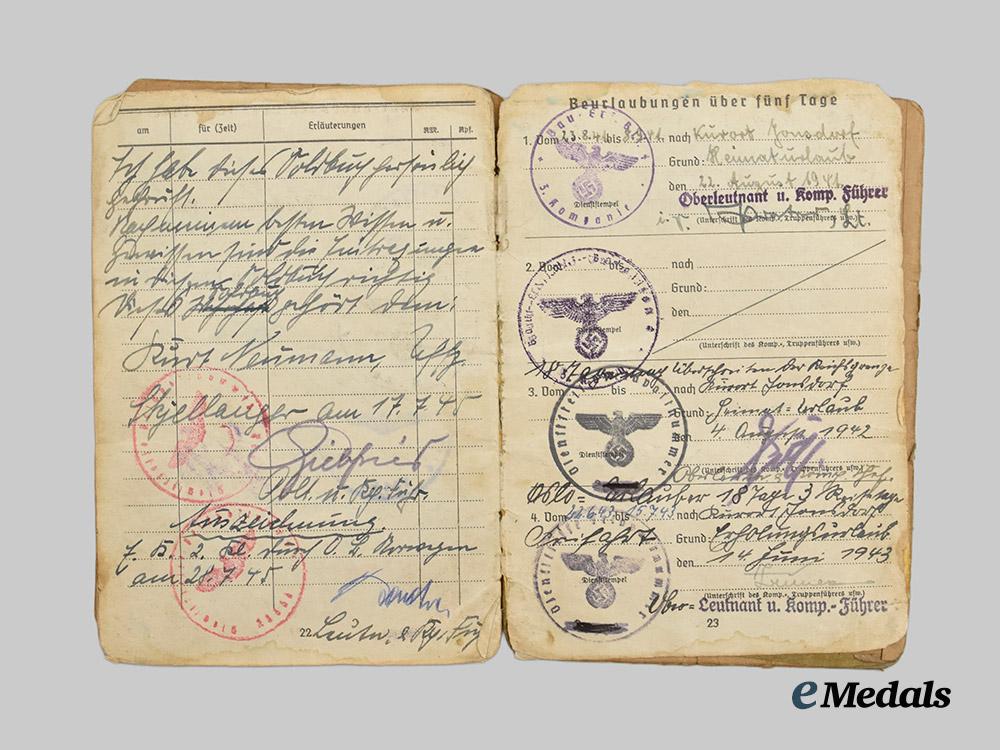 am für (Zeit) Erläuterungen RM. Rpf.
Ich habe dieses Soldbuch persönlich
geprüft.
Nach meinem besten Wissen u.
Gewissen sind die Eintragungen
in diesem Soldbuch richtig
Dieses gehört dem:
Kurt Neumann, Uffz.
am 17.7.45
Oblt. u. Kp. Fhr.
Auszeichnung.
2. Kl. durch O. Z. Norwegen
am 28.7.45
22 Leutn. u. Kp. Fhr
Beurlaubungen über fünf Tage
1. Vom 23.8.41 bis nach Kurort Jonsdorf
Grund: Heimaturlaub
den 22. August 1941
Dienststempel
Oberleutnant u. Komp. Führer
i. V. Lt.
(Unterschrift des Komp.-, Truppenführers usw.)
3. Kompanie
2. Vom bis nach
Grund:
den
Dienststempel
(Unterschrift des Komp.-, Truppenführers usw.)
Überschreiten der Reichsgrenze
3. Vom bis nach Kurort Jonsdorf
Grund: Heimat-Urlaub
den 4. August 1942
Dienststempel
(Unterschrift des Komp.-, Truppenführers usw.)
Oslo = 18 Tage 3 Reisetage
4. Vom 22.6.43 bis 15.7.43 nach Kurort Jonsdorf
Freifahrt Grund: Erholungsurlaub
den 14. Juni 1943
Dienststempel
(Unterschrift des Komp.-, Truppenführers usw.)
Ober= Leutnant u. Komp.-Führer
23
eMedals